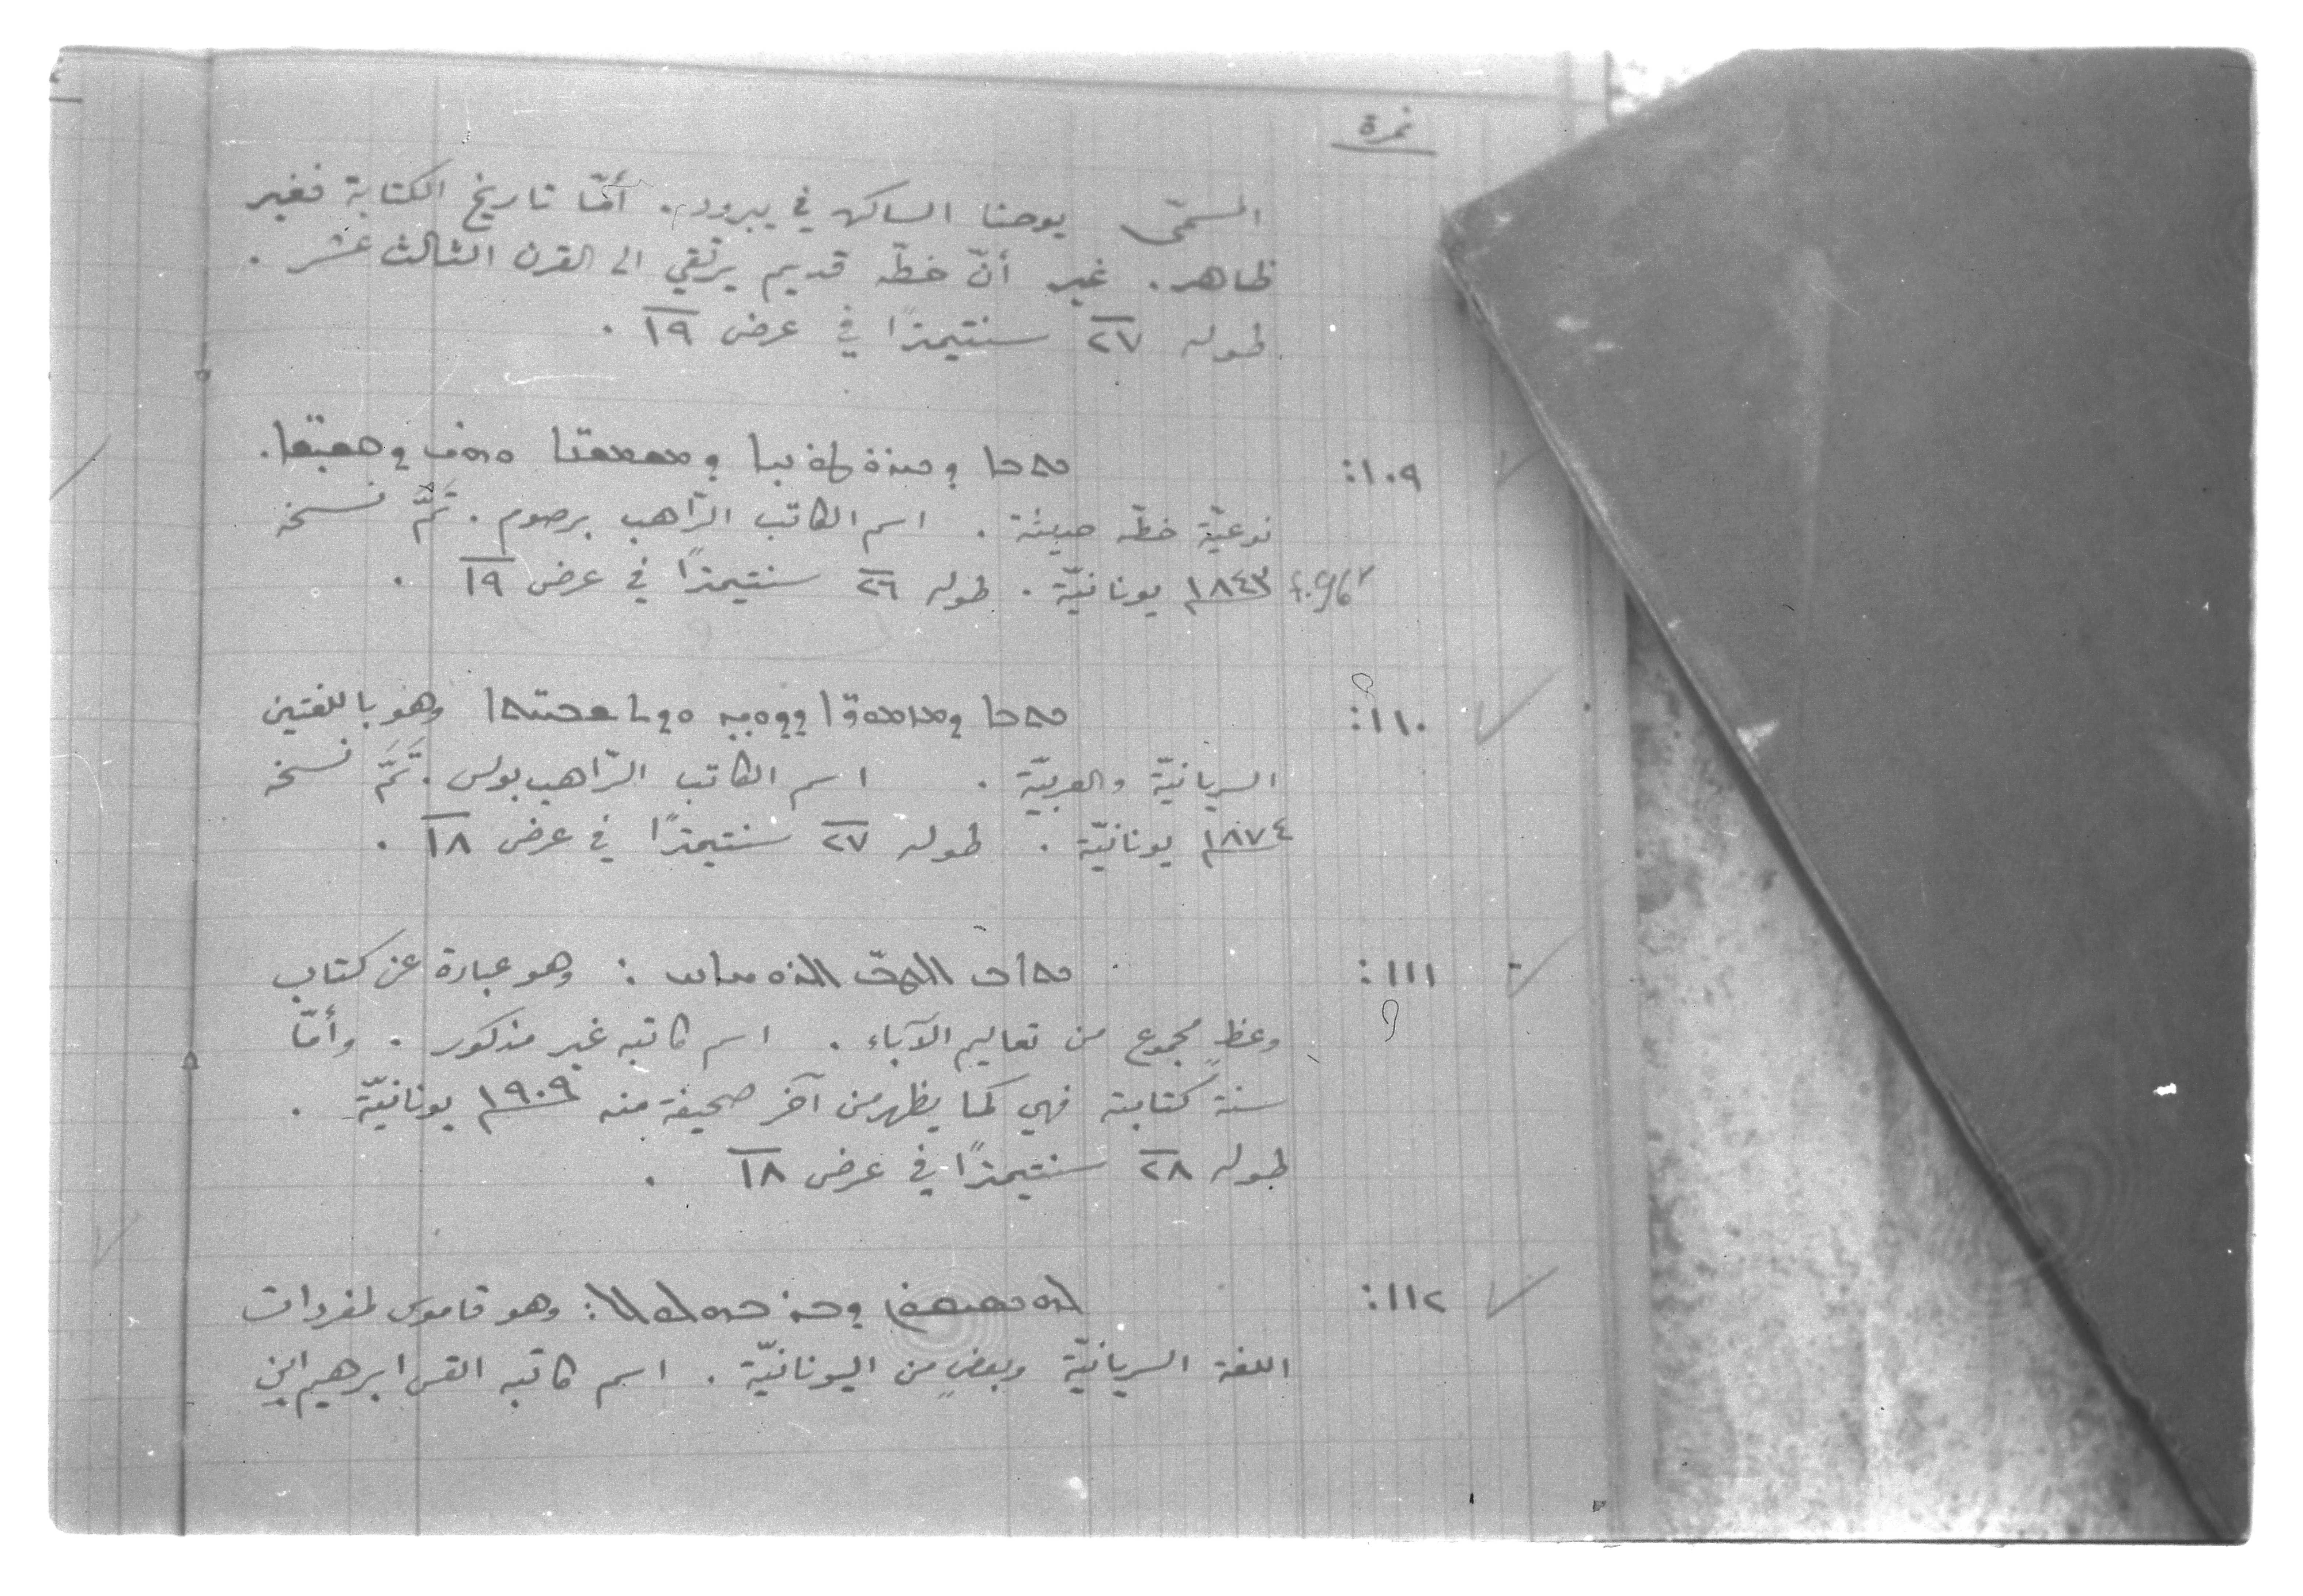 نمرة
المسمّى يوحنا الساكن في يبرود. أمّا تاريخ الكتابة فغير
ظاهر. غير أنّ خطّه قديم يرتقي الى القرن الثالث عشر.
طوله ٢٧ سنتيمترًا في عرض ١٩.
١٠٩: ܟܬܒܐ
نوعيّة خطّه حديثة. اسم الكاتب الرّاهب برصوم. تَمَّ نسخه
f.96r ١٨٤٣ يونانيّة. طوله ٢٦ سنتيمترًا في عرض ١٩.
١١٠: ܟܬܒܐ ܘܕܐܚܪܢܝܬܐ وهو باللغتين
السريانيّة والعربيّة. اسم الكاتب الرّاهب بولس. تَمَّ نسخه
١٨٧٤ يونانيّة. طوله ٢٧ سنتيمترًا في عرض ١٨.
١١١: ܟܬܐܒ ܐܠܛܒ ܐܠܪܘܚܐܢܝ: وهو عبارة عن كتاب
وعظٍ مجموع من تعاليم الآباء. اسم كاتبه غير مذكور. وأمّا
سنة كتابته فهي كما يظهر من آخر صحيفة منه ١٩٠٩ يونانيّة.
طوله ٢٨ سنتيمترًا في عرض ١٨.
١١٢: ܠܟܣܝܩܘܢ ܕܒܪ ܒܗܠܘܠ: وهو قاموس لمفردات
اللغة السريانيّة وبعضٍ من اليونانيّة. اسم كاتبه القس ابرهيم ابن